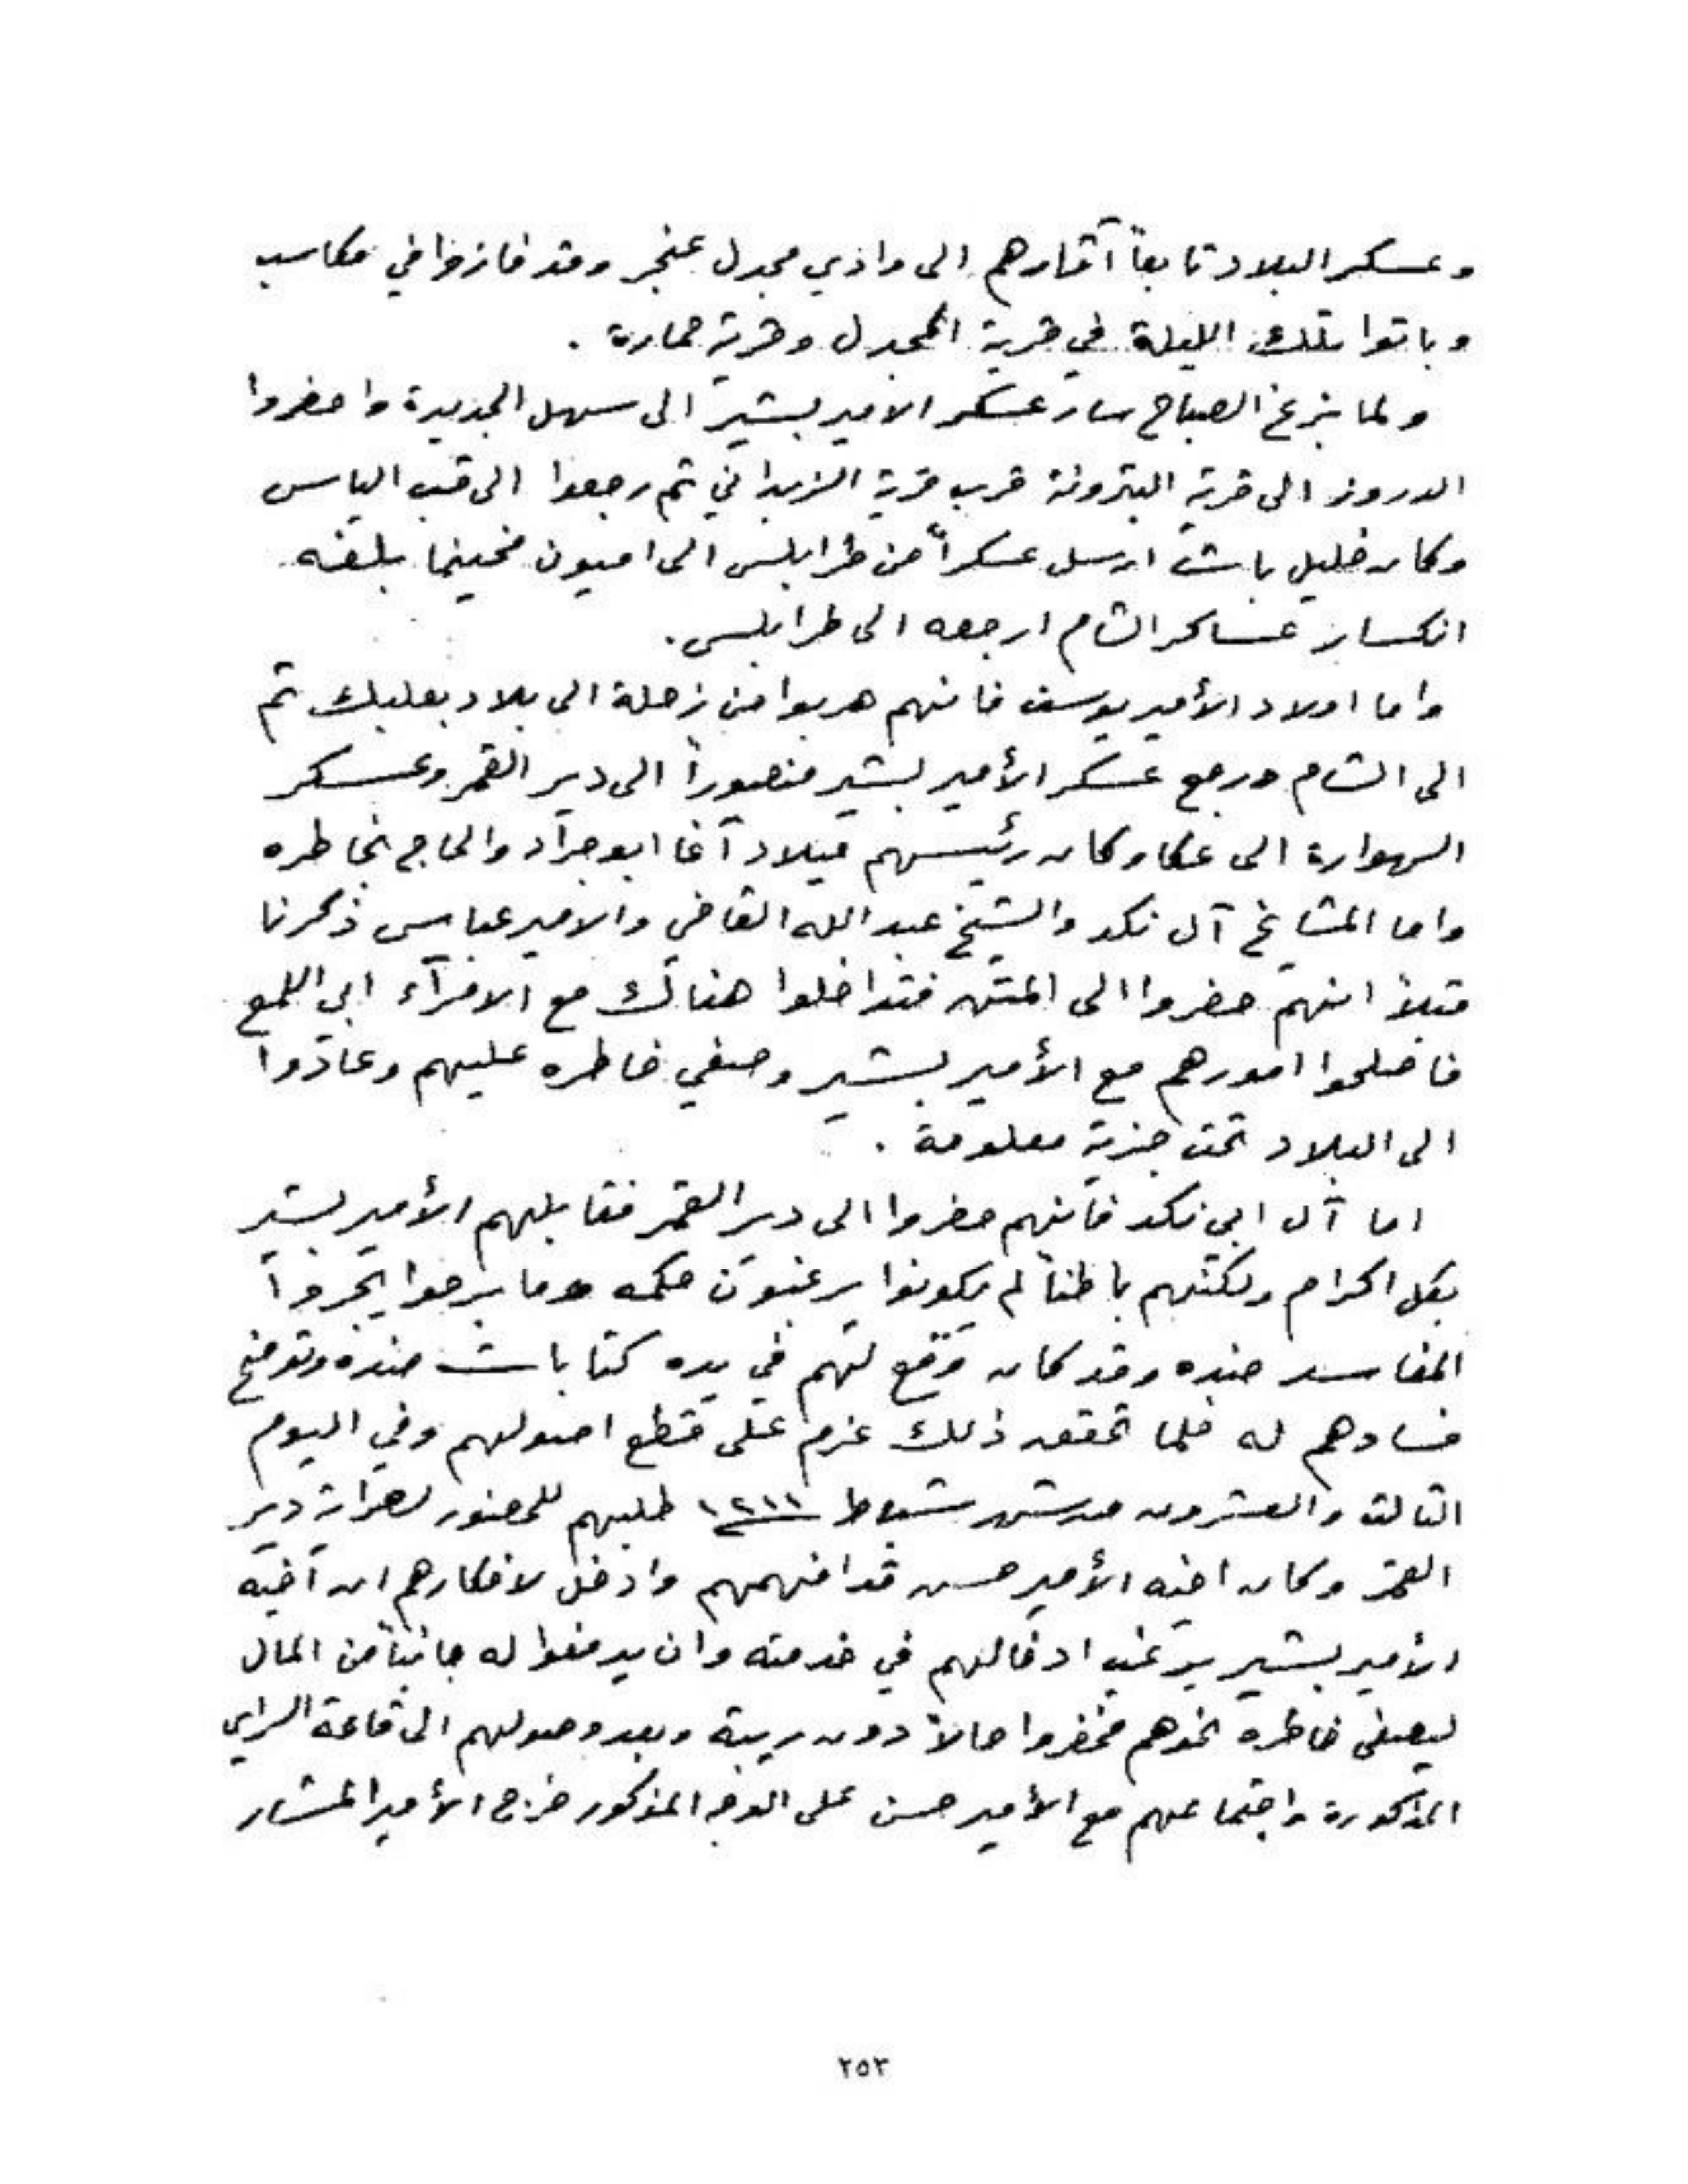 وعسكر البلاد تابعاً آثارهم الى وادي مجدل عنجر وقد فازوا في مكاسب
وباتوا تلك الليلة في قرية المجدل وقرية حمارة .
ولما بزغ الصباح سار عسكر الامير بشير الى سهل الجديدة واحضروا
الدروز الى قرية البترونة قرب قرية الزبداني ثم رجعوا الى قب الياس
وكان خليل باشا ارسل عسكراً من طرابلس الى اميون فحينما بلغه
انكسار عساكر الشام ارجعه الى طرابلس .
واما اولاد الأمير يوسف فانهم هربوا من زحلة الى بلاد بعلبك ثم
الى الشام ورجع عسكر الأمير بشير منصوراً الى دير القمر وعسكر
الهوارة الى عكا وكان رئيسهم ميلاد آغا ابو جراد والحاج بخاطره
واما المشايخ آل نكد والشيخ عبد الله القاضي والامير عباس ذكرنا
قبلاً انهم حضروا الى المتن فتداخلوا هناك مع الامرآء ابي اللمع
فاصلحوا امورهم مع الأمير بشير وصفي خاطره عليهم وعادوا
الى البلاد تحت جزية معلومة .
اما آل ابي نكد فانهم حضروا الى دير القمر فقابلهم الأمير بشير
بكل اكرام ولكنهم باطناً لم يكونوا يرغبون حكمه وما برحوا يجروا
المفاسد ضده وقد كان وقع لهم في يده كتابات ضده وتوضح
فسادهم له فلما تحقق ذلك عزم على قطع اصولهم وفي اليوم
الثالث والعشرون من شهر شباط ١٢١١ طلبهم للحضور لسراية دير
القمر وكان اخيه الأمير حسن قد افهمهم وادخل لافكارهم ان اخيه
الأمير بشير يرغب ادخالهم في خدمته وان يدفعوا له جانباً من المال
ليصفى خاطره نحوهم فحضروا حالاً دون ريبة وبعد وصولهم الى قاعة السراي
المذكورة واجتماعهم مع الأمير حسن على الوجه المذكور خرج الأمير المشار
٢٥٣